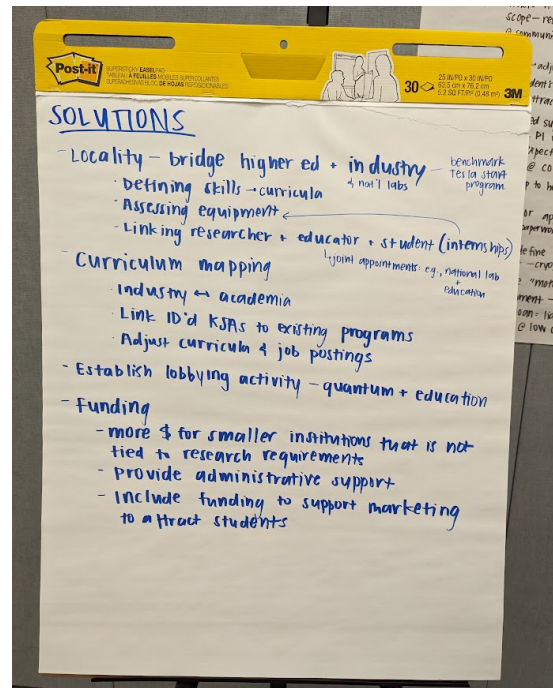 Post-it
SUPERSTICKY EASEL PAD
TABLEAU À FEUILLES MOBILES SUPER COLLANTES
SUPERADHESIVAS BLOC DE HOJAS REPOSICIONABLES
30
25 IN/PO x 30 IN/PO
63,5 cm x 76,2 cm
5.2 SQ FT/PI² (0.48 m²)
3M
SOLUTIONS
- Locality - bridge higher ed + industry - benchmark
& nat'l labs
Tesla start
program
· Defining skills → curricula
· Assessing equipment
· Linking researcher + educator + student (internships)
↳ joint appointments: e.g., national lab
+
education
- Curriculum mapping
· Industry ↔ academia
· Link ID'd KSAs to existing programs
· Adjust curricula & job postings
- Establish lobbying activity - quantum + education
- Funding
- more $ for smaller institutions that is not
tied to research requirements
- provide administrative support
- Include funding to support marketing
to attract students
scope
@
PI
@